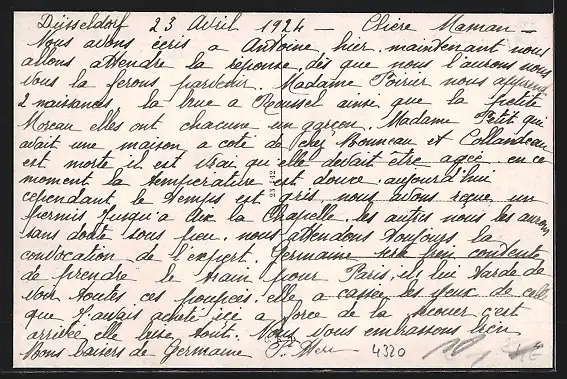 Düsseldorf 23 Avril 1924 — Chère Maman —
Nous avons écris a Antoine, hier, maintenant nous
allons attendre la réponse, dès que nous l'aurons nous
vous la ferons parvenir. Madame Poirier nous apprend
2 naissances, la brue a Roussel ainsi que la petite
Moreau elles ont chacune un garçon. Madame Petit qui
avait une maison a coté de chez Bonneau et Collandeau
est morte il est vrai qu'elle devait être agée. en ce
moment la température est douce. aujourd'hui
cependant le temps est gris nous avons reçue un
permis jusqu'a Aix la Chapelle. les autres nous les aurons
sans doute sous peu. nous attendons toujours la
convocation de l'expert. Germaine content
de prendre le train pour Paris, il lui tarde de
voir toutes ces poupées. elle a cassée les yeux de celle
que j'avais acheté ici a force de la secouer c'est
arrivée elle tout. Nous vous embrassons bien
Bons baisers de Germaine
4320
23 - 12